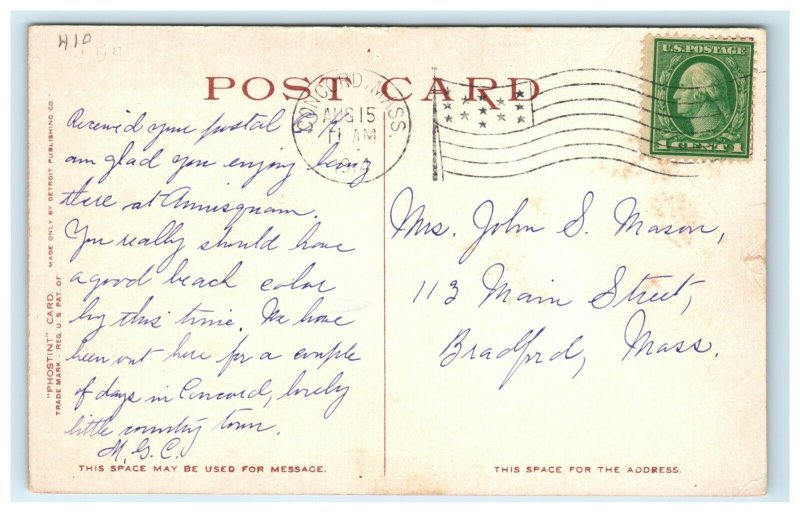 410
POST CARD
CONCORD, MASS.
AUG 15
11 AM
1914
U.S. POSTAGE
1 CENT 1
Received your postal
am glad you enjoy being
there at Annisquam.
You really should have
a good beach color
by this time. We have
been out here for a couple
of days in Concord, lovely
little country town.
M.G.C.
Mrs. John S. Mason,
113 Main Street,
Bradford, Mass.
"PHOSTINT" CARD. MADE ONLY BY DETROIT PUBLISHING CO.
TRADE MARK REG. U.S. PAT. OF
THIS SPACE MAY BE USED FOR MESSAGE.
THIS SPACE FOR THE ADDRESS.